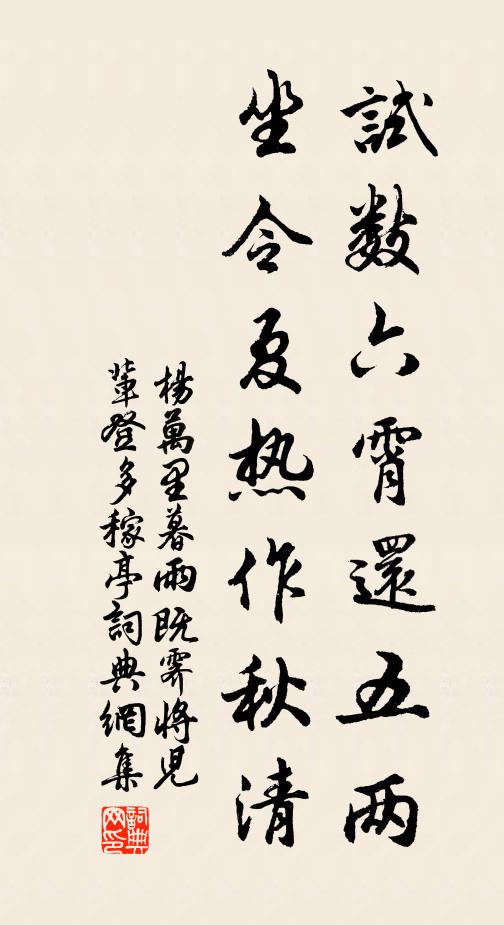 試數六霄還五两
坐令夏热作秋清
楊萬里暮雨既霽將児
輩登多稼亭詞典網集
詞典网印